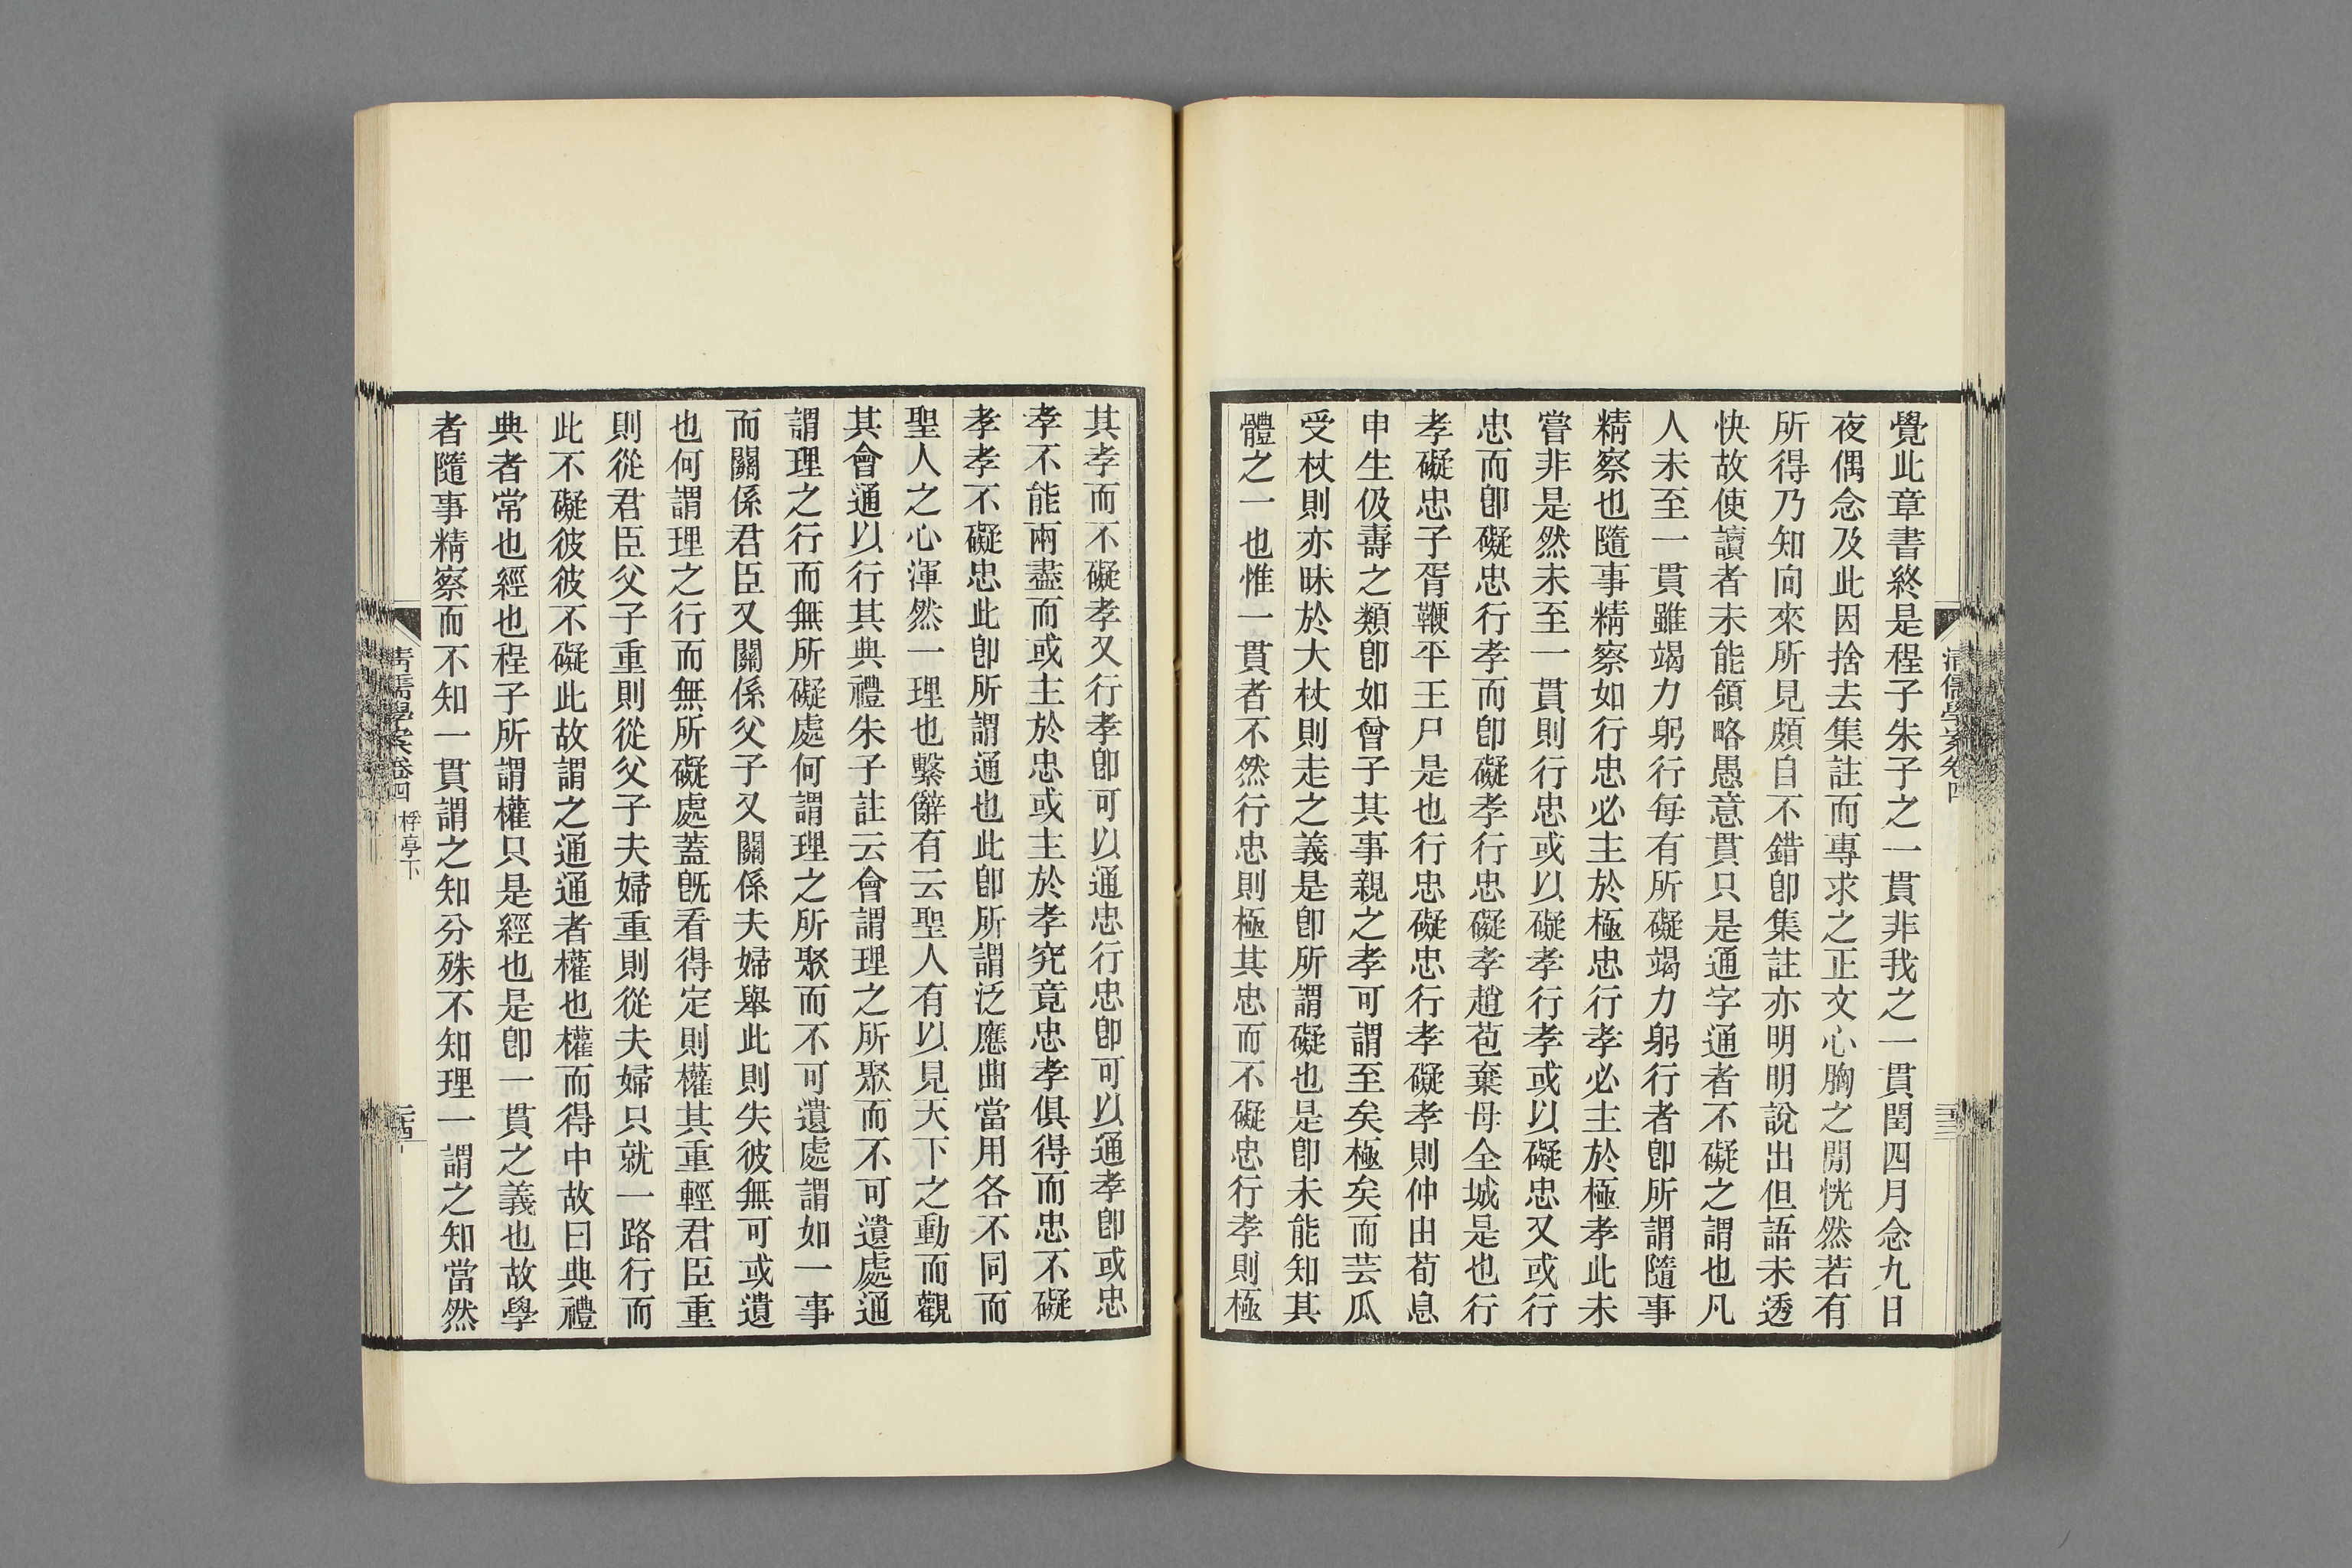 覺此章書終是程子朱子之一貫非我之一貫閏四月念九日
夜偶念及此因捨去集註而專求之正文心胸之閒恍然若有
所得乃知向來所見頗自不錯卽集註亦明明說出但語未透
快故使讀者未能領略愚意貫只是通字通者不礙之謂也凡
人未至一貫雖竭力躬行每有所礙竭力躬行者卽所謂隨事
精察也隨事精察如行忠必主於極忠行孝必主於極孝此未
嘗非是然未至一貫則行忠或以礙孝行孝或以礙忠又或行
忠而卽礙忠行孝而卽礙孝行忠礙孝趙苞棄母全城是也行
孝礙忠子胥鞭平王尸是也行忠礙忠行孝礙孝則仲由荀息
申生伋壽之類卽如曾子其事親之孝可謂至矣極矣而芸瓜
受杖則亦昧於大杖則走之義是卽所謂礙也是卽未能知其
體之一也惟一貫者不然行忠則極其忠而不礙忠行孝則極
清儒學案卷四
三十三
其孝而不礙孝又行孝卽可以通忠行忠卽可以通孝卽或忠
孝不能兩盡而或主於忠或主於孝究竟忠孝俱得而忠不礙
孝孝不礙忠此卽所謂通也此卽所謂泛應曲當用各不同而
聖人之心渾然一理也繫辭有云聖人有以見天下之動而觀
其會通以行其典禮朱子註云會謂理之所聚而不可遺處通
謂理之行而無所礙處何謂理之所聚而不可遺處謂如一事
而關係君臣又關係父子又關係夫婦舉此則失彼無可或遺
也何謂理之行而無所礙處蓋旣看得定則權其重輕君臣重
則從君臣父子重則從父子夫婦重則從夫婦只就一路行而
此不礙彼彼不礙此故謂之通通者權也權而得中故曰典禮
典者常也經也程子所謂權只是經也是卽一貫之義也故學
者隨事精察而不知一貫謂之知分殊不知理一謂之知當然
清儒學案卷四 桴亭下
三十四